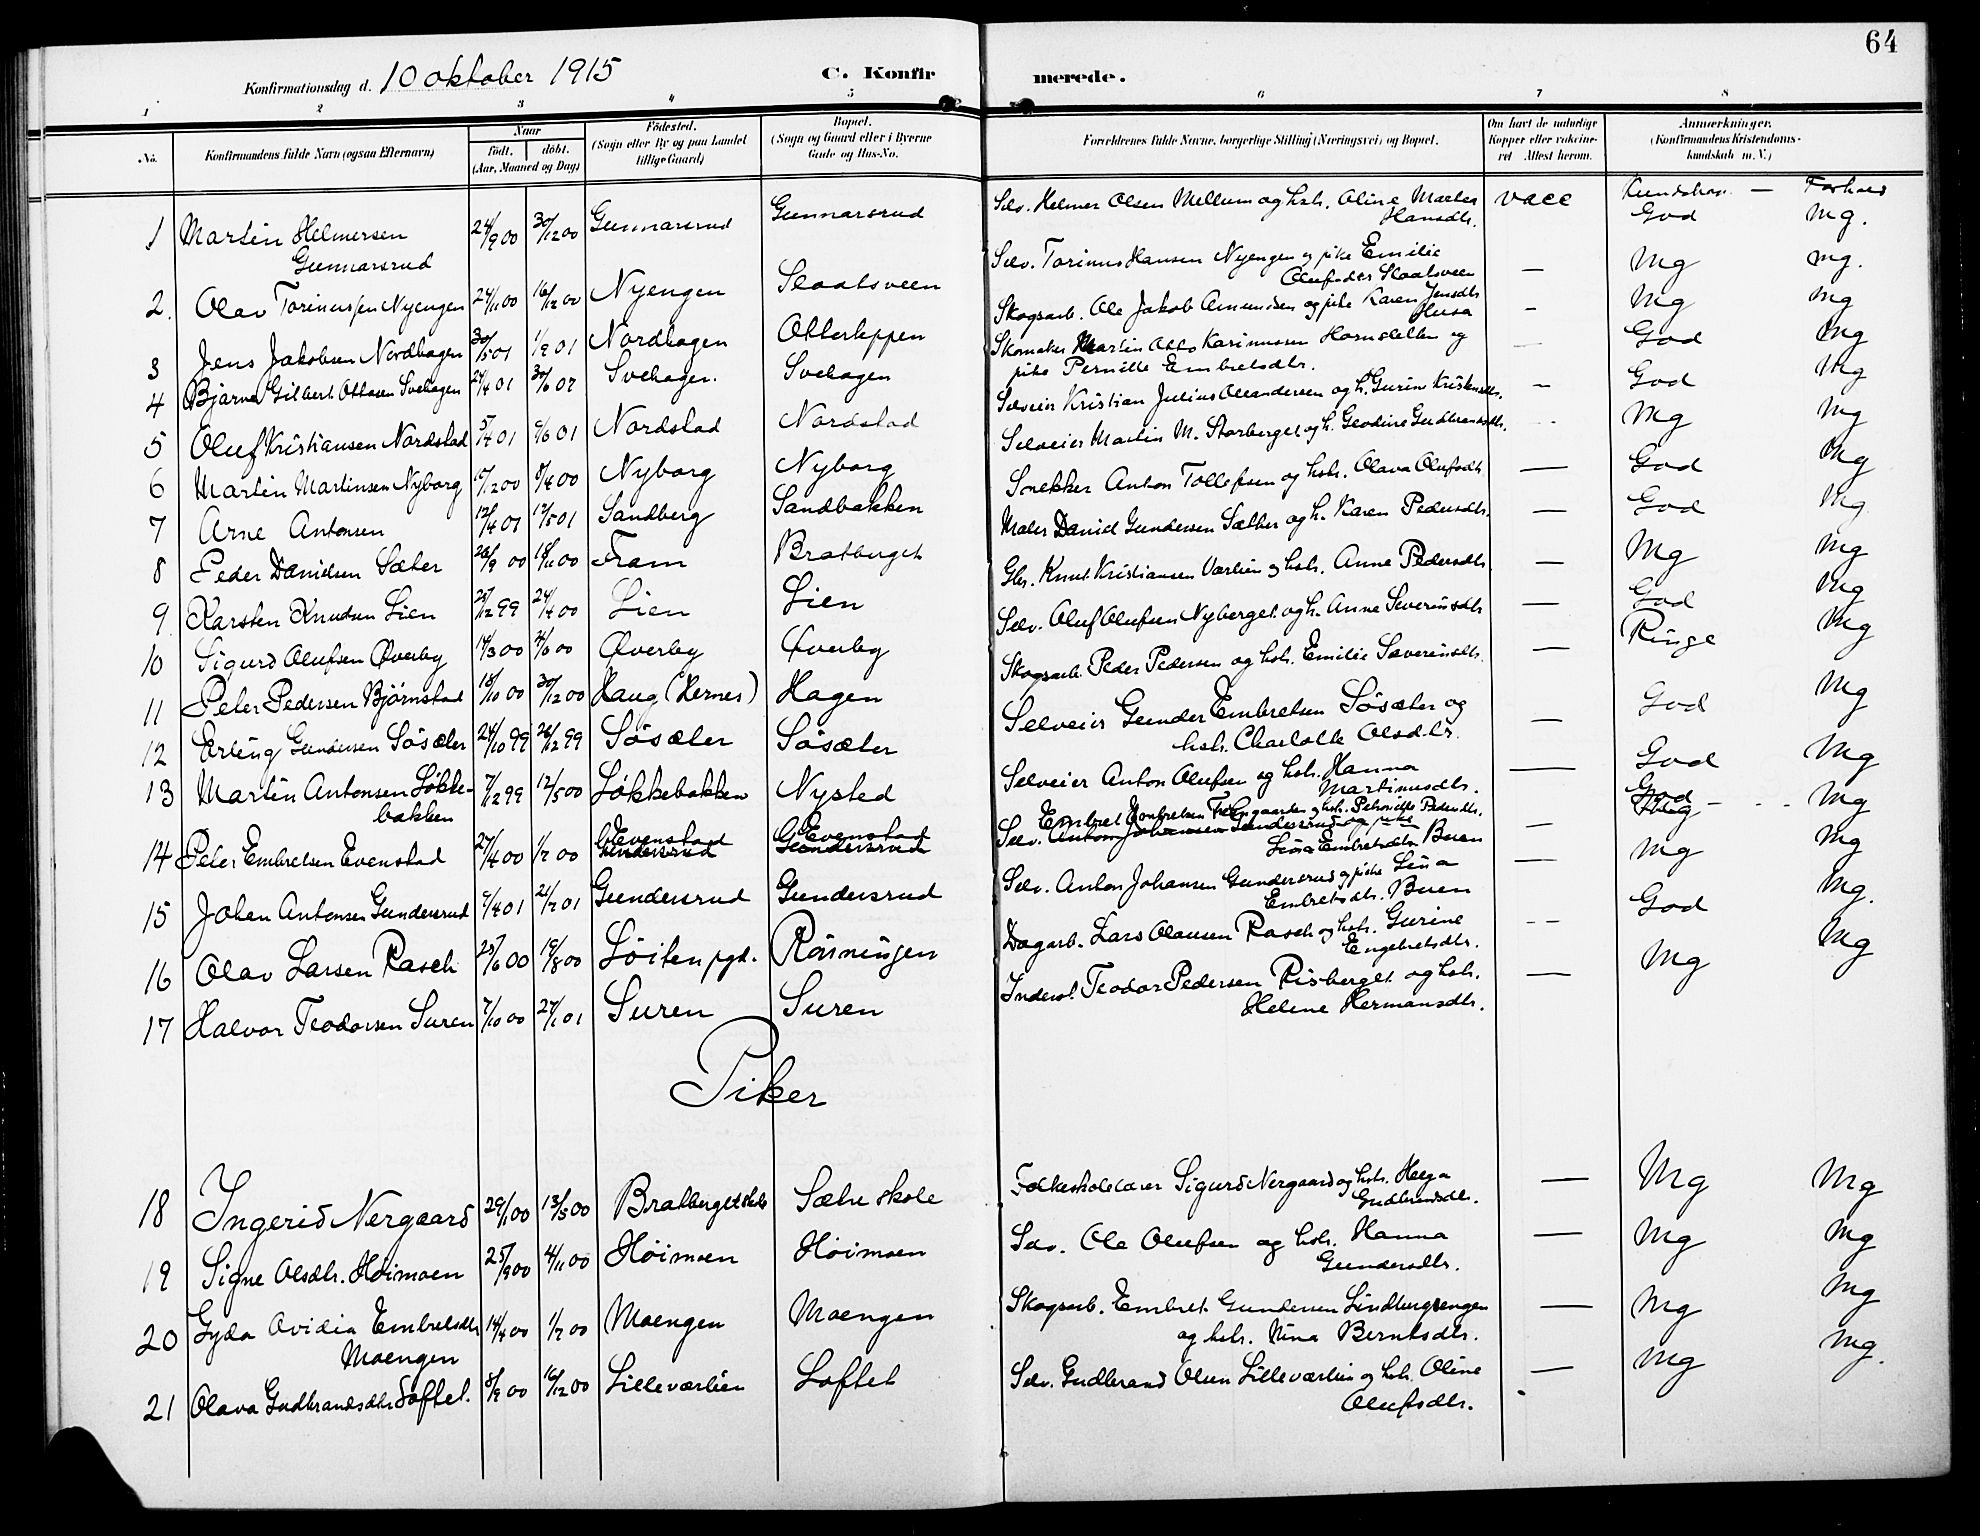 64
Konfirmationsdag d. 10 oktober 1915 C. Konfirmerede.
1 2 3 4 5 6 7 8
No. Konfirmandens fulde Navn (ogsaa Efternavn) Naar født. døbt. (Aar, Maaned og Dag) Fødested. (Sogn eller By og paa Landet tillige Gaard) Bopæl. (Sogn og Gaard eller i Byerne Gade og Hus-No. Forældrenes fulde Navne, borgerlige Stilling (Næringsvei) og Bopæl. Om havt de naturlige Kopper eller vakcineret. Attest herom. Anmerkninger. (Konfirmandens Kristendomskundskab m. V.)
Kundskap — Forhold
1 Martin Helmersen 24/9 00 30/12 00 Gunnarsrud Gunnarsrud Selv. Helmer Olsen Mellum og hstr. Oline Martea vacc God Mg.
Gunnarsrud Hansdtr.
2. Olav Torinussen Nyengen 24/11 00 16/12 00 Nyengen Slaatsveen Selv. Torinus Hansen Nyengen og pike Emilie — Mg Mg.
Olufsdtr Slaatsveen
3 Jens Jakobsen Nordhagen 30/5 01 1/9 01 Nordhagen Otterteppen Skogsarb. Ole Jakob Amundsen og pike Karen Jensdtr — Mg Mg
Husa
4 Bjarne Gilbert Ottosen Svehagen 24/4 01 30/6 07 Svehagen. Svehagen Skomaker Martin Otto Karinusen Hornsletten og — God Mg
pike Pernille Embretsdtr.
5 Oluf Kristiansen Nordstad 5/4 01 6/6 01 Nordstad Nordstad Selveier Kristian Julius Oleandersen og h. Gurine Kristensdtr. — God Mg
6 Martin Martinsen Nyborg 17/12 00 8/4 00 Nyborg Nyborg Selveier Martin M. Storberget og h. Geodine Gudbrandsdtr. Mg Mg
7 Arne Antonsen 12/4 01 17/5 01 Sandberg Sandbakken Snekker Anton Tollefsen og hstr. Olava Olufsdtr — God Mg
8 Peder Danielsen Sæter 26/9 00 18/11 00 Fram Bratberget Maler Daniel Gundersen Sæther og h. Karen Pedersdtr. — God Mg
9 Karsten Knudsen Lien 25/12 99 24/4 00 Lien Lien Gbr. Knut Kristiansen Værlien og hstr. Anne Pedersdtr — Mg Mg
10 Sigurd Olufsen Øverby 14/3 00 4/6 00 Øverby Øverby Selv. Oluf Olufsen Nyberget og h. Anne Severinsdtr — God Mg
11 Peter Pedersen Bjørnstad 18/10 00 30/12 00 Haug (Hernes) Hagen Skogsarb. Peder Pedersen og hstr. Emilie Severinsdtr. — Ringe Mg
12 Erling Gundersen Søsæter 24/10 99 26/12 99 Søsæter Søsæter Selveier Gunder Embretsen Søsæter og — God Mg
hstr. Charlotte Olsdtr.
13 Martin Antonsen Løkke- 7/12 99 12/5 00 Løkkebakken Nysted Selveier Anton Olufsen og hstr. Hanna — God Mg
bakken Martinusdtr.
14 Peter Embretsen Evenstad 27/4 00 1/7 00 Evenstad Gundersrud Evenstad Gundersrud Embret Embretsen og hstr. Petronille Pedersdtr. God Mg Mg
Selv. Anton Johansen Gundersrud og pike —
Lina Embretsdtr Buen
15 Johan Antonsen Gundersrud 6/4 01 21/7 01 Gundersrud Gundersrud Selv. Anton Johansen Gundersrud og pike Lina — Mg Mg
Embretsdtr. Buen
16 Olav Larsen Rasch 25/6 00 19/8 00 Löiten pgd. Rösningen Dagarb. Lars Olausen Rasch og hstr. Gurine — God Mg.
Engebretsdtr.
17 Halvor Teodorsen Suren 7/10 00 27/1 01 Suren Suren Inderst Teodor Pedersen Risberget og hstr. — Mg Mg
Helene Hermansdtr.
Piker
18 Ingerid Nergaard 29/1 00 13/5 00 Bratberget skole Sætre skole Folkeskolelærer Sigurd Nergaard og hstr. Helga — Mg Mg
Gudbrandsdtr.
19 Signe Olsdtr. Høimoen 25/9 00 4/11 00 Høimoen Høimoen Selv. Ole Olufsen og hstr. Hanna — Mg Mg
Gundersdtr.
20 Gyda Ovidia Embretsdtr 14/4 00 1/7 00 Moengen Moengen Skogsarb. Embret Gundersen Lindbergsengen — Mg Mg
Moengen og hstr. Nina Berntsdtr.
21 Olava Gudbrandsdtr Loftet. 8/9 00 16/12 00 Lilleværlien Loftet Selv. Gudbrand Olsen Lilleværlien og hstr. Oline — Mg Mg.
Olufsdtr.